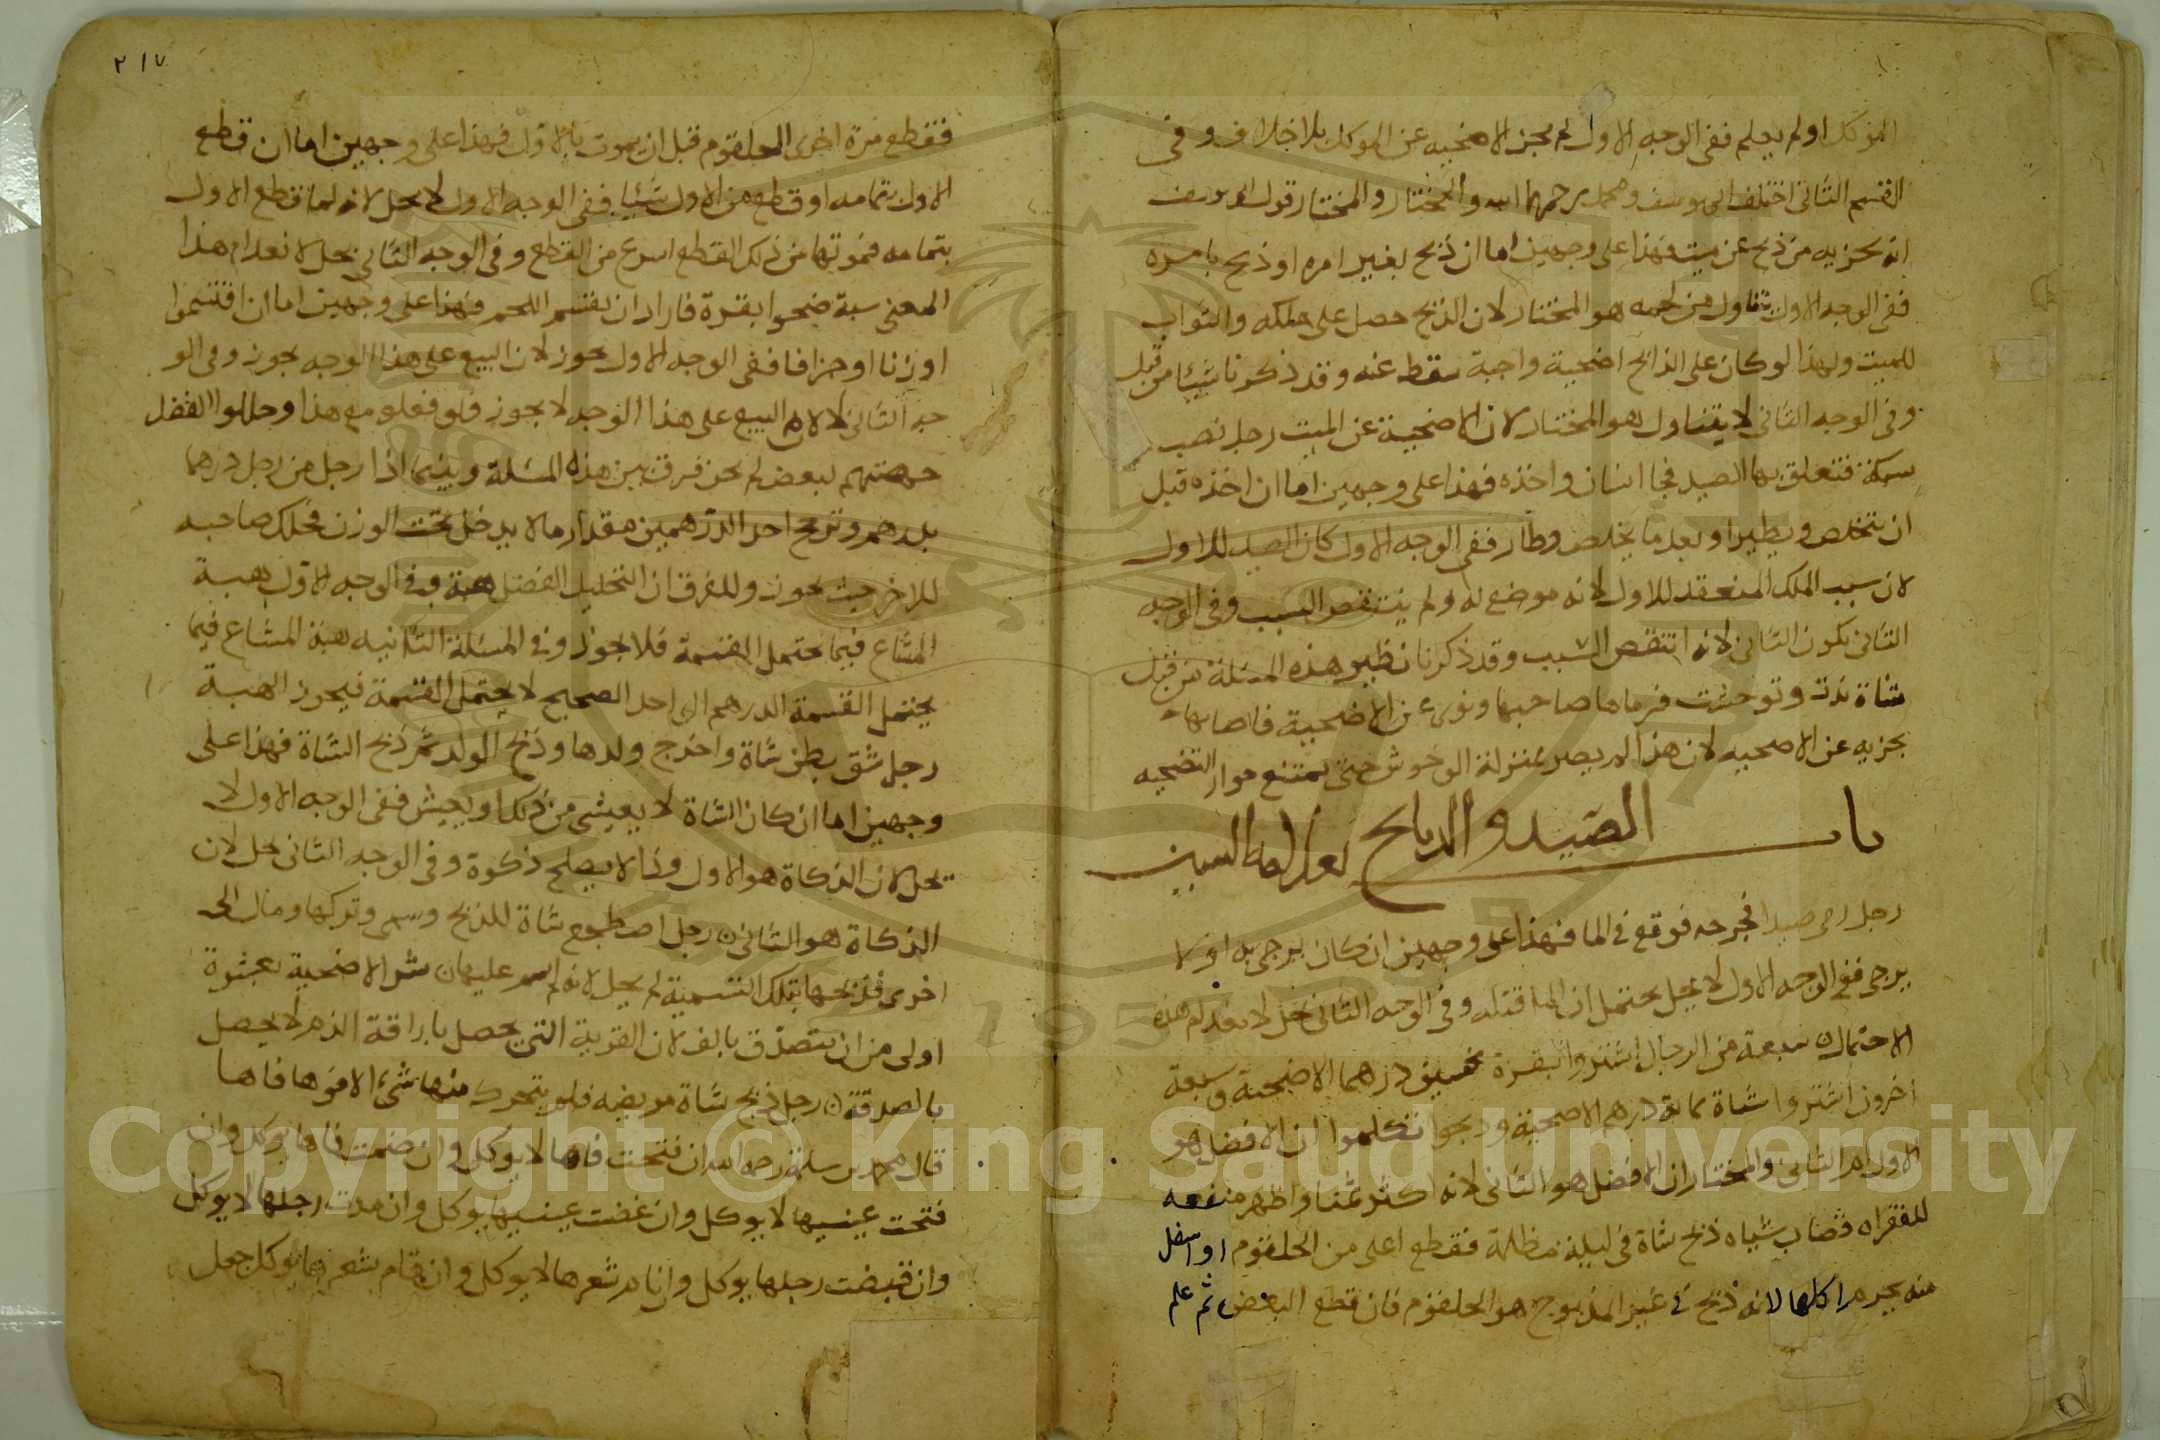 الموكل اولم يعلم ففى الوجه الاول لم يجز الاضحيه عن الموكل بلا خلاف وفى
القسم الثانى اختلف ابو يوسف ومحمد رحمهما الله والمختار والمختار قول ابو يوسف
انه يجزيه من ذبح عن ميت فهذا على وجهين اما ان ذبح بغير امره او ذبح بامره
ففى الوجه الاول يتناول من لحمه هو المختار لان الذبح حصل على ملكه والثواب
للميت ولهذا لو كان على الذابح اضحية واجبة سقط عنه وقد ذكرنا شيئا من قبل
وفى الوجه الثانى لا يتناول هو المختار لان الاضحية عن الميت رجل نصب
سبكة فتعلق بها الصيد فجا انسان واخذه فهذا على وجهين اما ان اخذه قبل
ان يتخلص ويطير او بعد ما يخلص وطار ففى الوجه الاول كان الصيد للاول
لان سبب الملك المنعقد للاول لانه موضع له ولم ينتقض السبب وفى الوجه
الثانى يكون الثانى لانه انتقض السبب وقد ذكرنا نظير هذه المسئلة من قبل
شاة ندت وتوحشت فرماها صاحبها ونوى عن الاضحية فاصابها
يجزيه عن الاضحيه لان هذا لم يصر بمنزلة الوحوش حتى يمتنع جواز التضحيه
باب الصيد والذبائح
رجل رمى صيدا فجرحه فوقع فى الما فهذا على وجهين ان كان يرجى به او لا
يرجى ففى الوجه الاول لا يحل يحتمل ان الما قتله وفى الوجه الثانى حل لانعدام هذه
الاحتمال سبعة من الرجال اشتروا بقرة بخمسين درهما الاضحية وسبعة
اخرون اشتروا شاة بمائة درهم الاضحية وذبحوا تكلموا ان الافضل هو
الاول ام الثانى والمختار ان الافضل هو الثانى لانه اكثر ثمنا واظهر منفعه
للفقراه قصاب شياه ذبح شاة فى ليلة مظلمة فقطع اعلى من الحلقوم او اسفل
منه يحرم اكلها لانه ذبح فى غير المذبوح هو الحلقوم فان قطع البعض ثم علم
٢١٧
فقطع مرة اخرى الحلقوم قبل ان يموت بالاول فهذا على وجهين اما ان قطع
الاول بتمامه او قطع من الاول شيئا ففى الوجه الاول لا يحل لانه لما قطع الاول
بتمامه فموتها من ذلك القطع اسرع من القطع وفى الوجه الثانى يحل لانعدام هذا
المعنى سبة ضحوا بقرة فارادان يقسم اللحم فهذا على وجهين اما ان اقتسموا
اوزنا او جزافا ففى الوجه الاول يجوز لان البيع على هذا الوجه يجوز وفى الو
جه الثانى لا لان البيع على هذا الوجه لا يجوز فلو فعلو مع هذا وحللوا الفضل
بعضهم لبعض لم يجز فرق بين هذه المسئلة وبينما اذا رجل من رجل درهما
بدرهم وترجح احد الدرهمين مقدار مالا يدخل تحت الوزن فحلك صاحبه
للاخر حيث يجوز وللفرق ان التحليل الفضل هبة وفى الوجه الاول هبة
المشاع فيما يحتمل القسمة فلا يجوز وفى المسئلة الثانيه هبة المشاع فيما
يحتمل القسمة الدرهم الواحد الصحيح لا يحتمل القسمة فيجوز الهبة
رجل شق بطن شاة واخرج ولدها وذبح الولد ثم ذبح الشاة فهذا على
وجهين اما ان كان الشاة لا يعيش من ذلك او يعيش ففى الوجه الاول لا
يحل لان الذكاة هو الاول وذا لا يصلح ذكوة وفى الوجه الثانى حل لان
الذكاة هو الثانى رجل اضطجع شاة للذبح وسمى وتركها ومال الى
اخرى فذبحها بتلك التسمية لم يحل لانه لم يسم عليها شر الاضحية بعشرة
اولى من ان يتصدق بالف لان القربة التى يحصل باراقة الدم لا يحصل
بالصدقة رجل ذبح شاة مريضه فلم يتحرك منها شئ الا فوها فاها
قال محمد بن سلمة رحه الله ان فتحت فاها لا يوكل وان ضمت فاها يوكل وان
فتحت عينيها لا يوكل وان غضت عينيها يوكل وان مدت رجلها لا يوكل
وان قبضت رجلها يوكل وان نام شعرها لا يوكل وان قام شعرها يوكل جعل
Copyright © King Saud University
1957